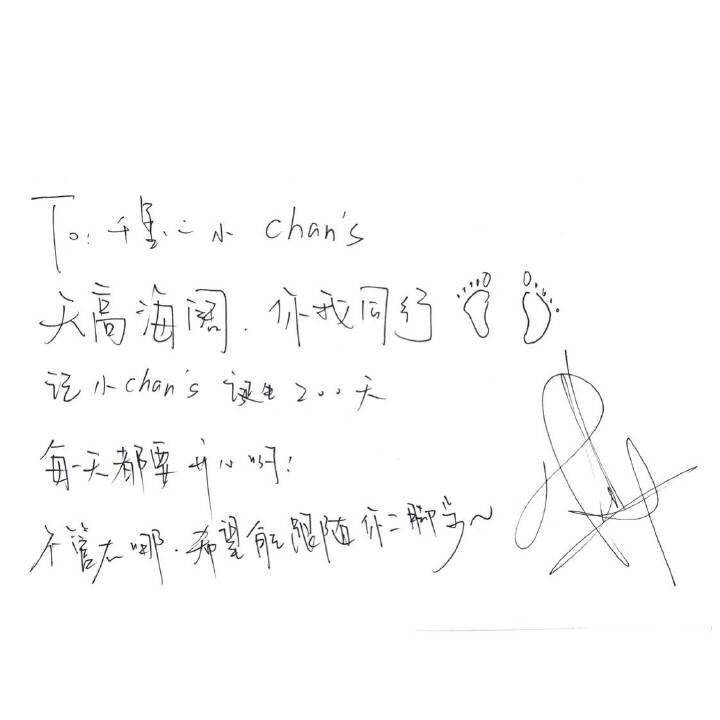 To: 千玺、小 chan's
天高海阔.你我同行
记小chan's 诞生200天
每一天都要开心哟!
不管在哪.希望能跟随你的脚步~